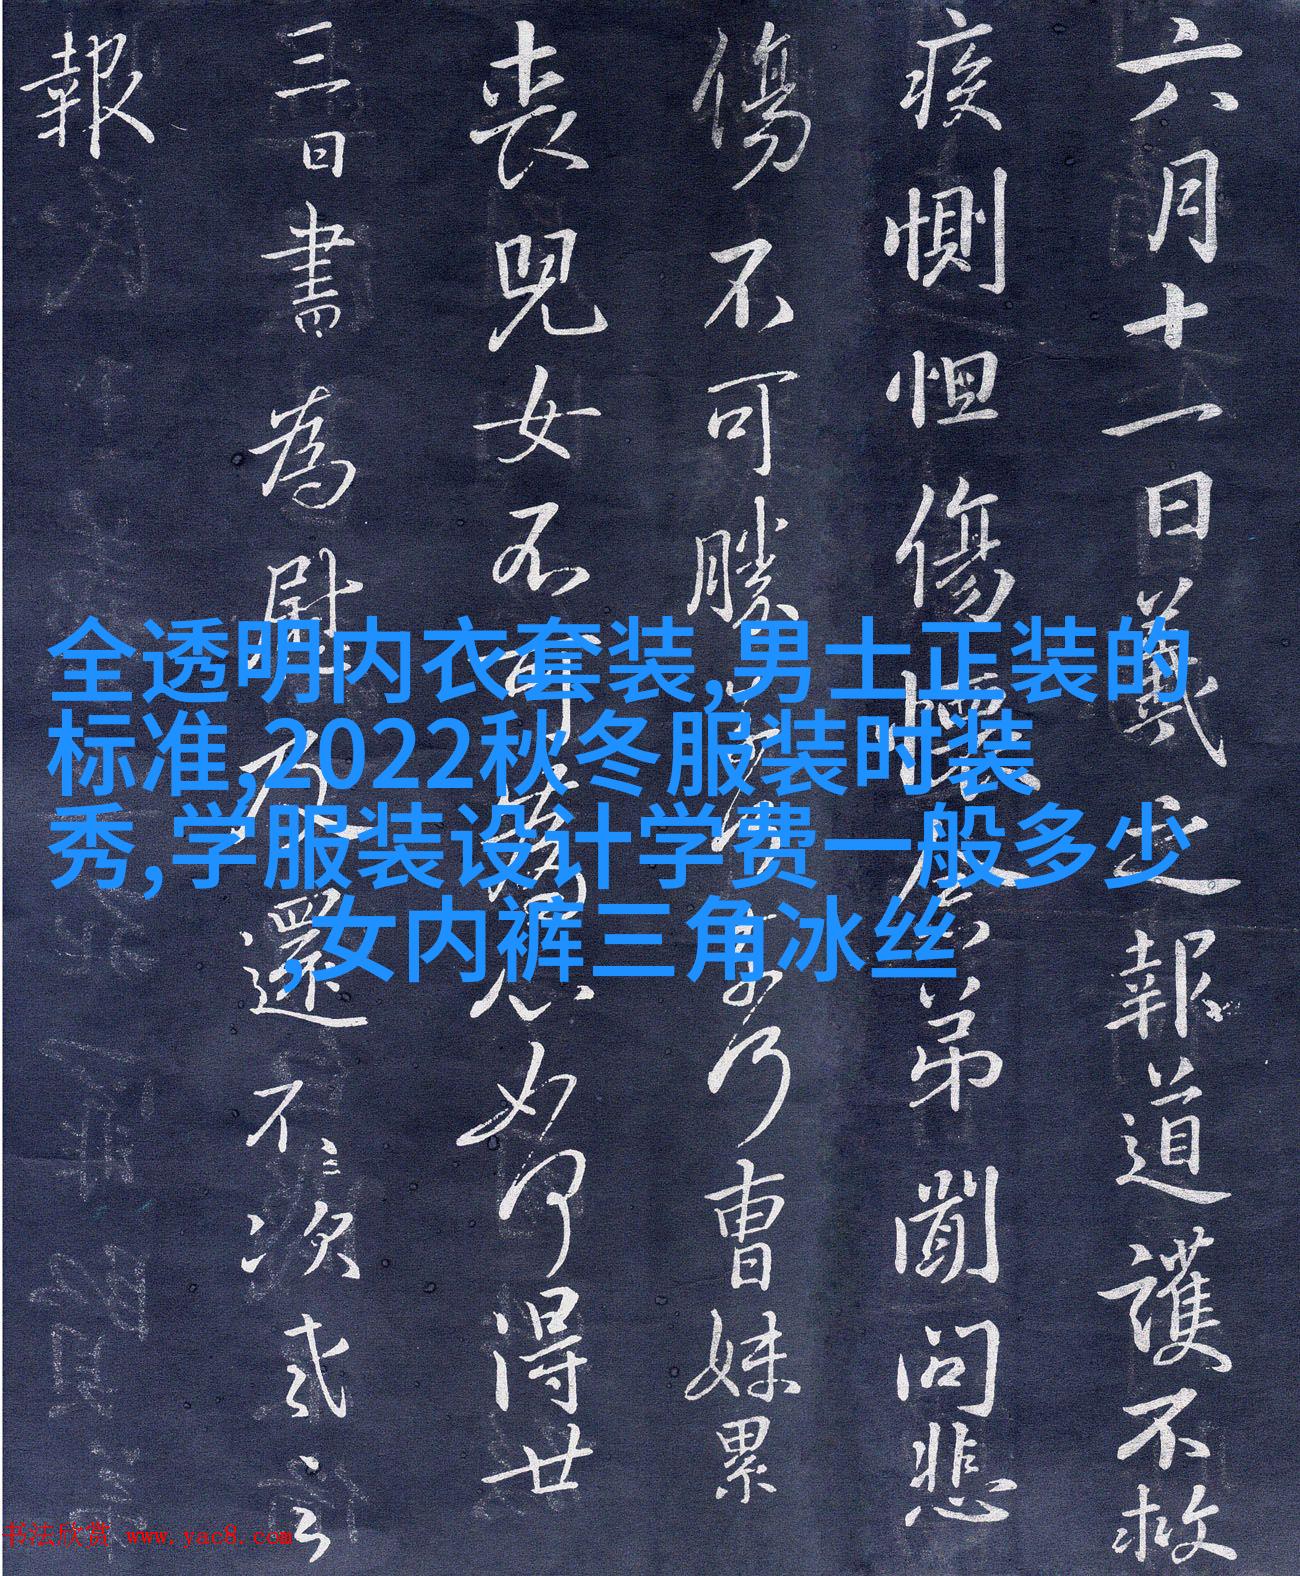 六月十一日羲之報道護不救
疾惻怛傷懷念弟聞問悲
傷不可勝乃曹妹累
喪兒女不可為心如何得廿
三日書為慰及還不次
報
全透明内衣套装,男士正装的
标准,2022秋冬服装时装
秀,学服装设计学费一般多少
,女内裤三角冰丝
书法欣赏 www.yac8.com